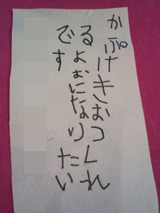 かぷけきおつくれ
るよおになりたい
です